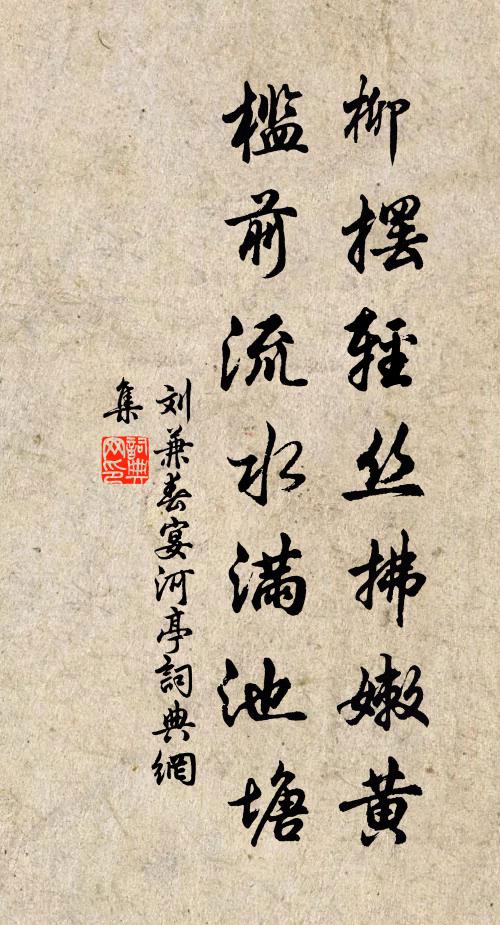 柳摆轻丝拂嫩黄
槛前流水满池塘
刘兼春宴河亭詞典網
集
詞典
网印